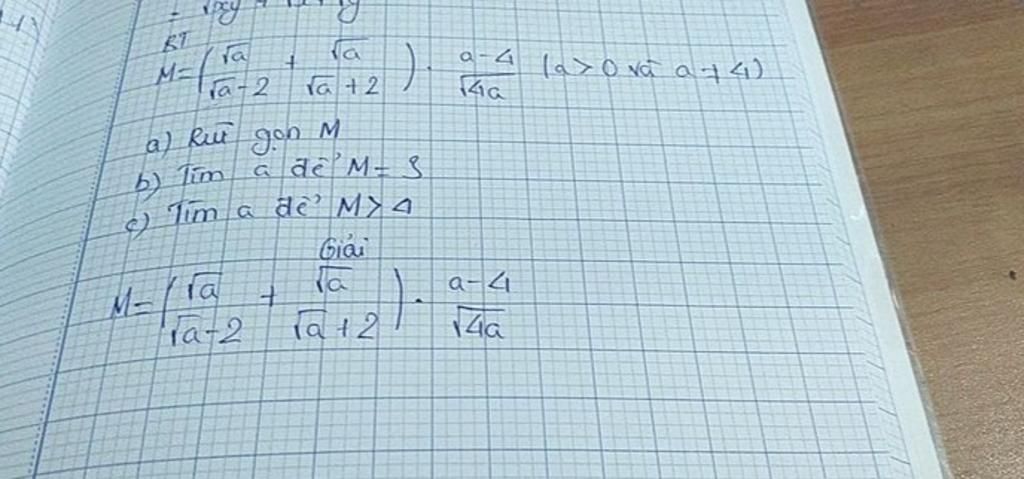 BT
M=(√a/√a-2 + √a/√a+2) . a-4/√4a (a>0 và a≠4)
a) Rút gọn M
b) Tìm a để M= 3
c) Tìm a để M> 4
Giải
M=(√a/√a-2 + √a/√a+2) . a-4/√4a